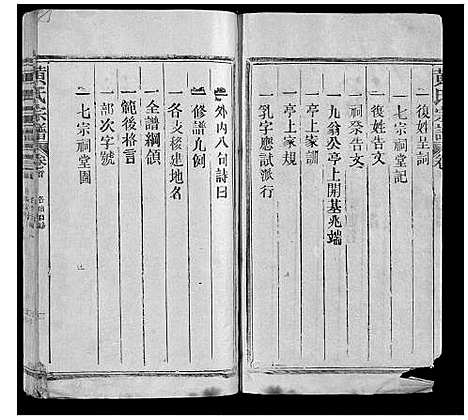 黄氏宗譜
一復姓呈詞
一七宗祠堂記
一復姓告文
一祠祭告文
一九翁公亭上開基兆端
一亭上家訓
一亭上家規
一乳字應試派行
一外內八句詩曰
一修譜凡例
一各支移建地名
一全譜綱領
一範後格言
一部次字號
一七宗祠堂圖
黄氏宗譜